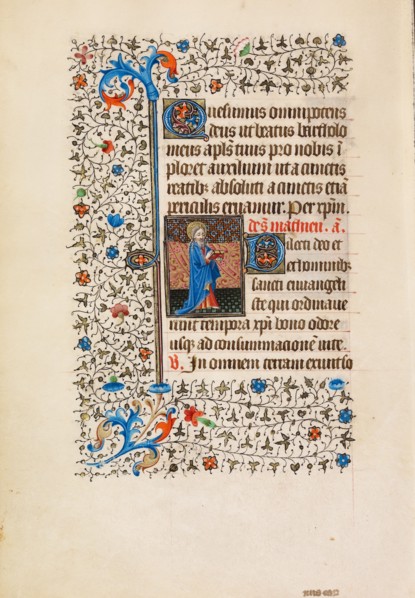 Quesumus omnipotens
deus ut beatus bartholo
meus apls tuus pro nobis i
ploret auxilium ut a cunctis
reatibz absoluti a cunctis etiā
periculis eruamur. Per xpm.
De s̄ matheu. a.
Dilecti deo et
hominibz
sancti euuangeli
ste qui ordinaue
runt tempora xpi bono odore
usqz ad consummacionē uite.
V. In omnem terram exiuit so